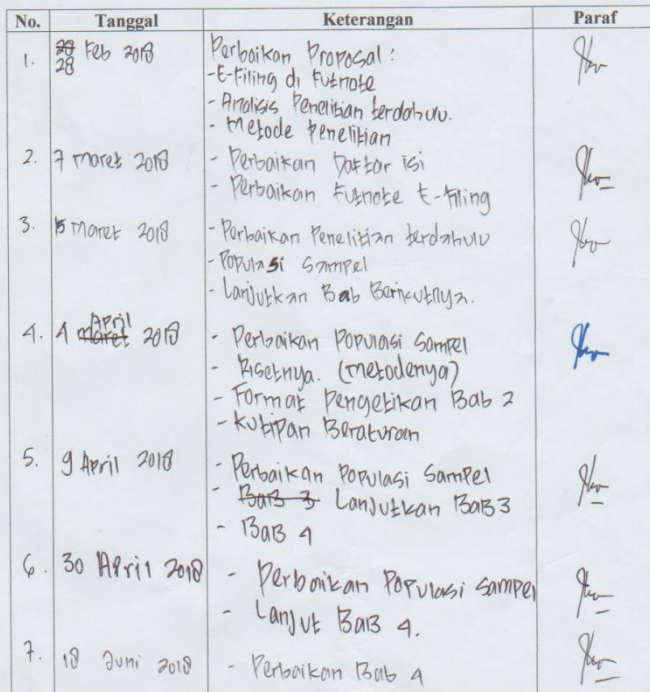 No. Tanggal Keterangan Paraf
1. 28 Feb 2018 Perbaikan Proposal :
28 -E-Filing di Futnote
- Analisis Penelitian terdahulu.
- Metode Penelitian
2. 7 Maret 2018 - Perbaikan Daftar isi
- Perbaikan Futnote E-Filing
3. 15 Maret 2018 - Perbaikan Penelitian terdahulu
- Populasi Sampel
- Lanjutkan Bab Berikutnya.
April
4. 4 maret 2018 - Perbaikan Populasi Sampel
- Risetnya. (metodenya)
- Format Pengetikan Bab 2
- Kutipan Beraturan
5. 9 April 2018 - Perbaikan Populasi Sampel
- BaB 3 Lanjutkan BaB 3
- BaB 4
6. 30 April 2018 - Perbaikan Populasi Sampel
- Lanjut BaB 4.
7. 18 Juni 2018 - Perbaikan Bab 4